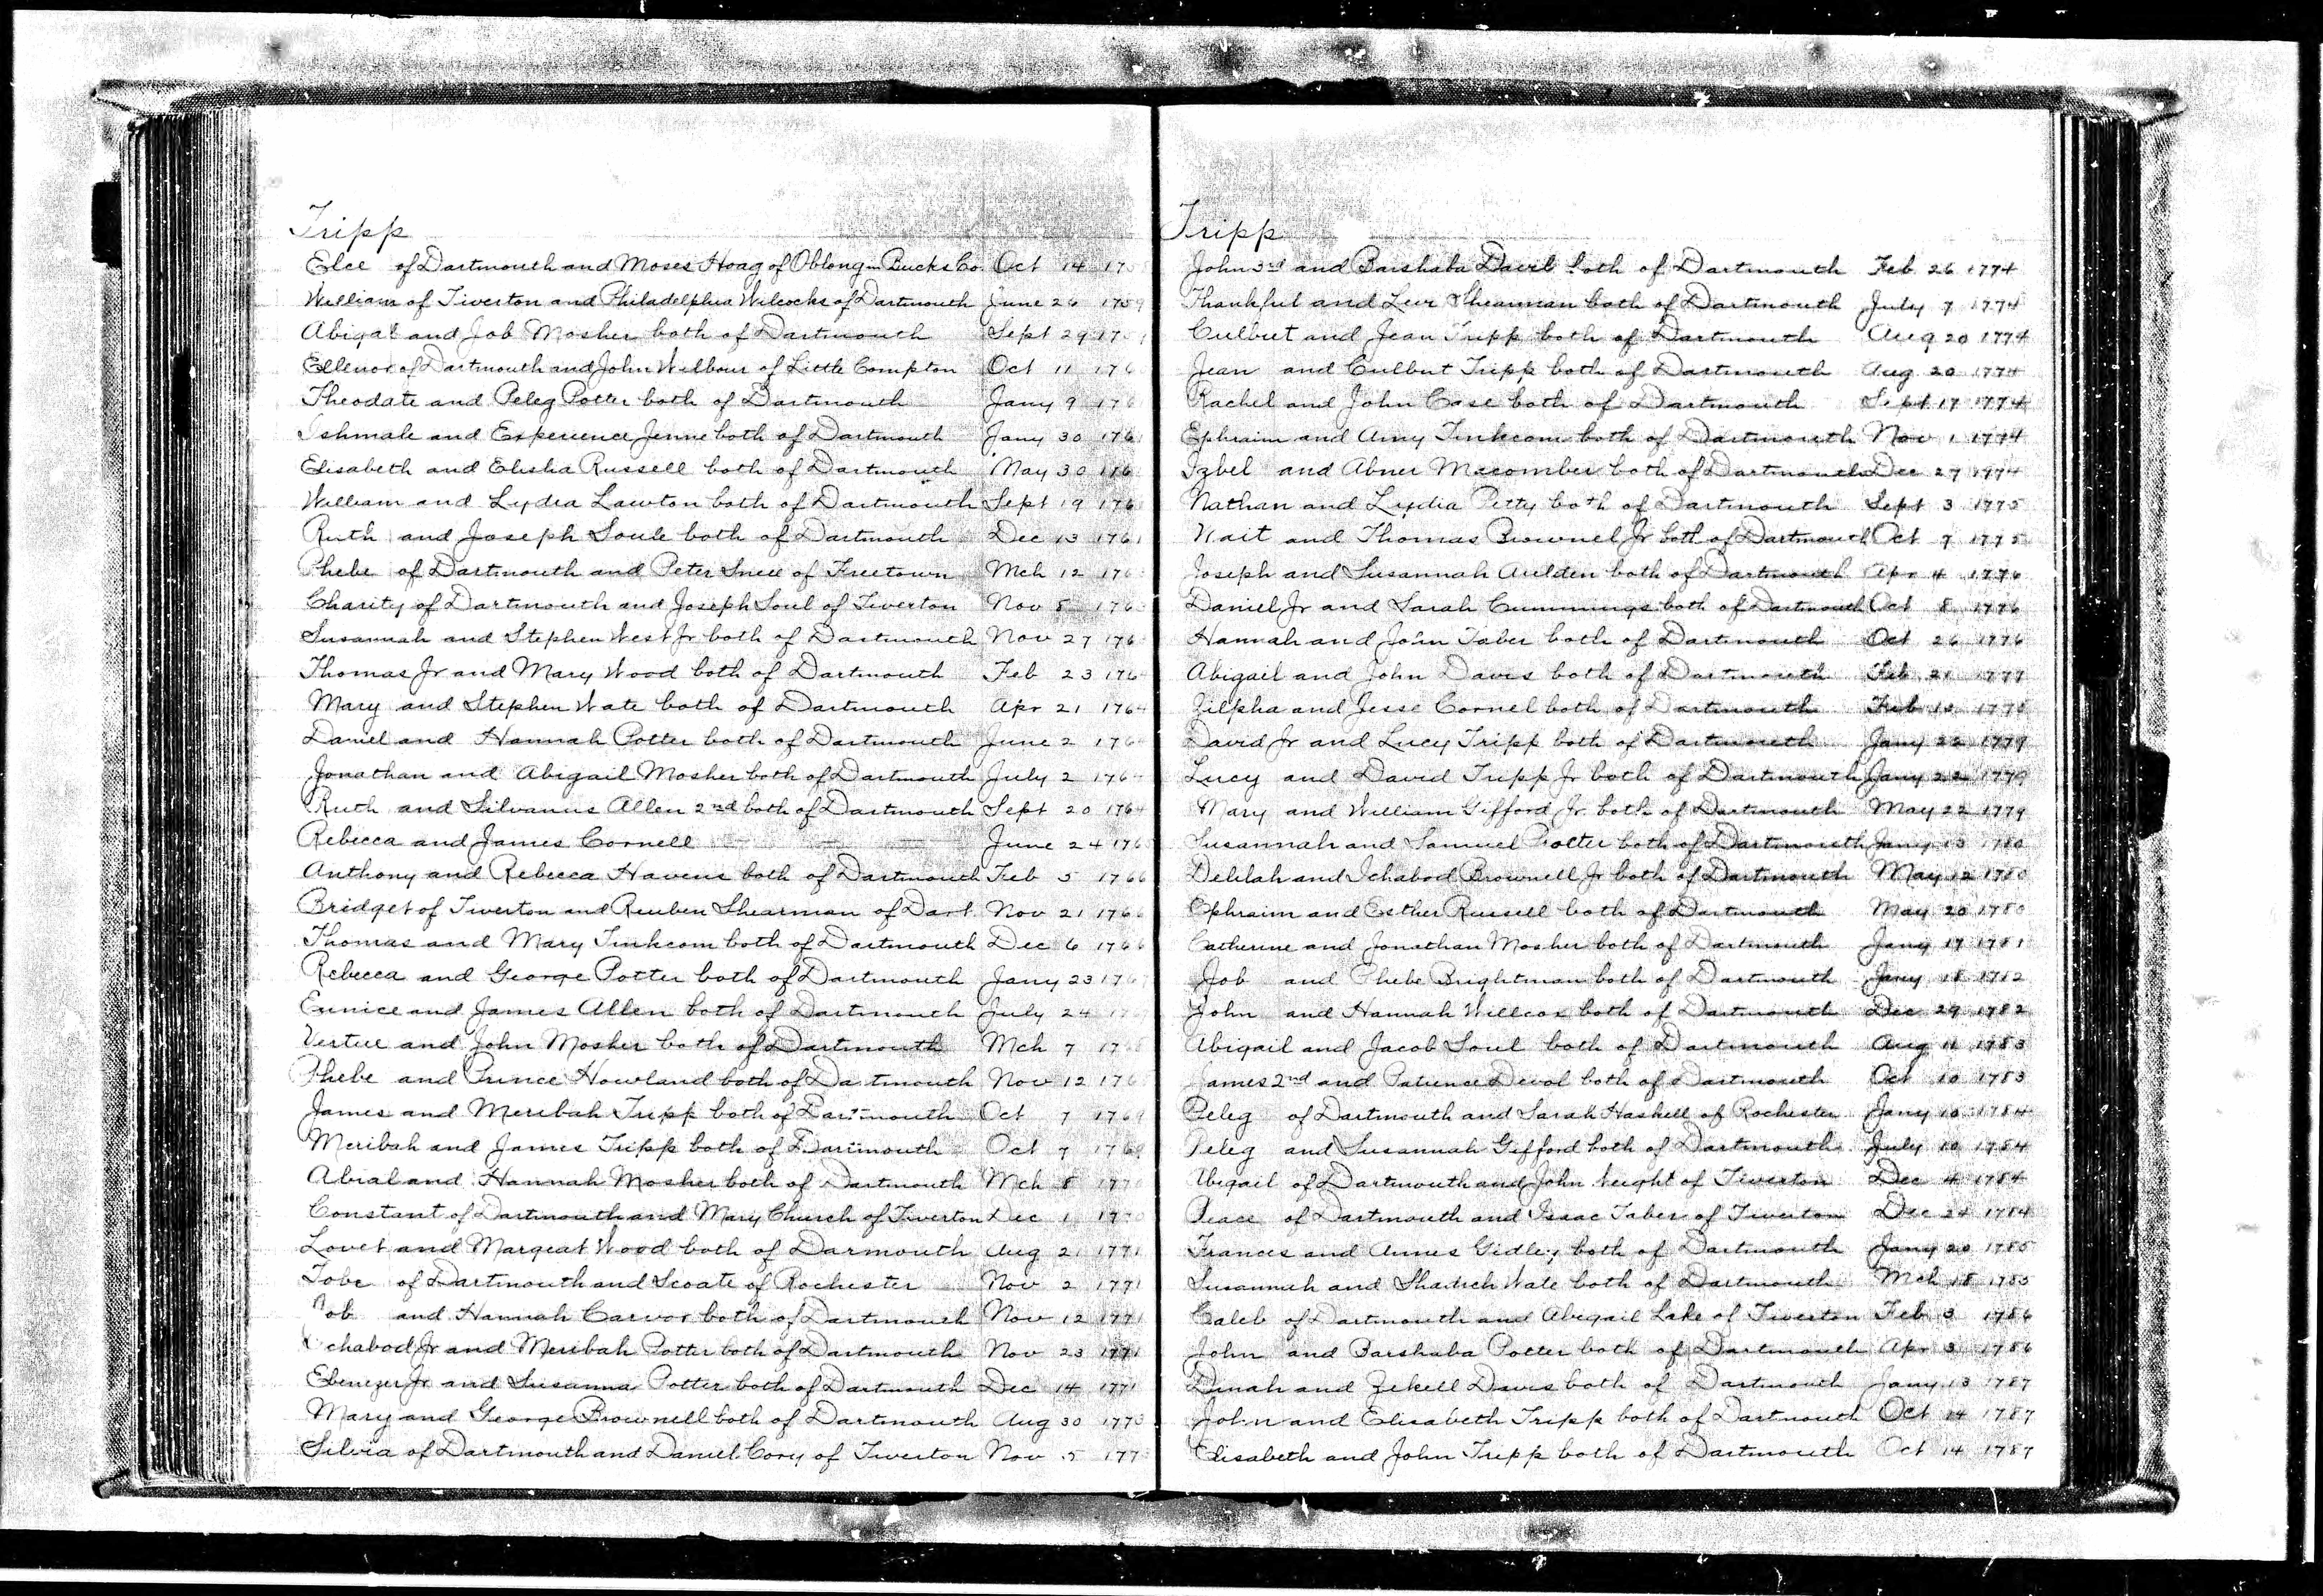 Tripp
Elce of Dartmouth and Moses Hoag of Oblong in Bucks Co. Oct 14 175
William of Tiverton and Philadelphia Wilcocks of Dartmouth June 26 1759
Abigal and Job Mosher both of Dartmouth Sept 29 175
Ellenor of Dartmouth and John Wilbour of Little Compton Oct 11 176
Theodate and Peleg Potter both of Dartmouth Jany 9 176
Ishmale and Experience Jenne both of Dartmouth Jany 30 176
Elisabeth and Elisha Russell both of Dartmouth May 30 176
William and Lydia Lawton both of Dartmouth Sept 19 176
Ruth and Joseph Soule both of Dartmouth Dec 13 1761
Phebe of Dartmouth and Peter Snell of Freetown Mch 12 176
Charity of Dartmouth and Joseph Soul of Tiverton Nov 8 176
Susannah and Stephen West Jr both of Dartmouth Nov 27 176
Thomas Jr and Mary Wood both of Dartmouth Feb 23 176
Mary and Stephen Wate both of Dartmouth Apr 21 1764
Daniel and Hannah Potter both of Dartmouth June 2 176
Jonathan and Abigail Mosher both of Dartmouth July 2 176
Ruth and Silvanus Allen 2nd both of Dartmouth Sept 20 1764
Rebecca and James Cornell June 24 176
Anthony and Rebecca Havens both of Dartmouth Feb 5 1766
Bridget of Tiverton and Reuben Shearman of Dart. Nov 21 1766
Thomas and Mary Tinkcom both of Dartmouth Dec 6 1766
Rebecca and George Potter both of Dartmouth Jany 23 176
Eunice and James Allen both of Dartmouth July 24 17
Vertue and John Mosher both of Dartmouth Mch 7 176
Phebe and Prince Howland both of Dartmouth Nov 12 176
James and Meribah Tripp both of Dartmouth Oct 7 1769
Meribah and James Tripp both of Dartmouth Oct 7 1769
Abial and Hannah Mosher both of Dartmouth Mch 8 1770
Constant of Dartmouth and Mary Church of Tiverton Dec 1 1770
Lovet and Margeat Wood both of Darmouth Aug 21 1771
Tobe of Dartmouth and Scoate of Rochester Nov 2 1771
ob and Hannah Carvor both of Dartmouth Nov 12 1771
Ichabod Jr and Meribah Potter both of Dartmouth Nov 23 1771
Ebenezer Jr and Susanna Potter both of Dartmouth Dec 14 1771
Mary and George Brownell both of Dartmouth Aug 30 1773
Silvia of Dartmouth and Daniel Cory of Tiverton Nov 5 177
Tripp
John 3rd and Barshaba Davil both of Dartmouth Feb 26 1774
Thankful and Levi Shearman both of Dartmouth July 7 1774
Culbut and Jean Tripp both of Dartmouth Aug 20 1774
Jean and Culbut Tripp both of Dartmouth Aug 20 1774
Rachel and John Case both of Dartmouth Sept 17 1774
Ephraim and Amy Tinkcom both of Dartmouth Nov 1 1774
Izbel and Abner Macomber both of Dartmouth Dec 27 1774
Nathan and Lydia Petty both of Dartmouth Sept 3 1775
Wait and Thomas Brownel Jr both of Dartmouth Oct 7 1775
Joseph and Susannah Aulden both of Dartmouth Apr 4 1776
Daniel Jr and Sarah Cummings both of Dartmouth Oct 8 1776
Hannah and John Taber both of Dartmouth Oct 26 1776
Abigail and John Davis both of Dartmouth Feb 21 1777
Zilpha and Jesse Cornel both of Dartmouth Feb 1778
David Jr and Lucy Tripp both of Dartmouth Jany 22 1779
Lucy and David Tripp Jr both of Dartmouth Jany 22 1779
Mary and William Gifford Jr both of Dartmouth May 22 1779
Susannah and Samuel Potter both of Dartmouth Jany 13 1780
Delilah and Ichabod Brownell Jr both of Dartmouth May 12 1780
Ephraim and Esther Russell both of Dartmouth May 20 1780
Catherine and Jonathan Mosher both of Dartmouth Jany 17 1781
Job and Phebe Brightman both of Dartmouth Jany 18 1782
John and Hannah Willcox both of Dartmouth Dec 29 1782
Abigail and Jacob Soul both of Dartmouth Aug 11 1783
James 2nd and Patience Devol both of Dartmouth Oct 10 1783
Peleg of Dartmouth and Sarah Haskell of Rochester Jany 10 1784
Peleg and Susannah Gifford both of Dartmouth July 10 1784
Abigail of Dartmouth and John Weight of Tiverton Dec 4 1784
Peace of Dartmouth and Isaac Taber of Tiverton Dec 24 1784
Frances and Annes Gidley both of Dartmouth Jany 20 1785
Susannah and Shadrch Wate both of Dartmouth Mch 18 1785
Caleb of Dartmouth and Abigail Lake of Tiverton Feb 3 1786
John and Barshaba Potter both of Dartmouth Apr 3 1786
Dinah and Zekell Davis both of Dartmouth Jany 13 1787
John and Elisabeth Tripp both of Dartmouth Oct 14 1787
Elisabeth and John Tripp both of Dartmouth Oct 14 1787